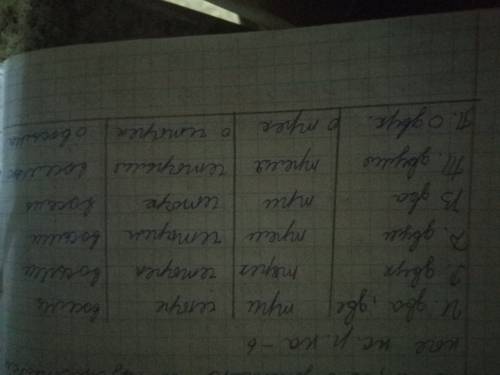 на -ь
И. два, две три четыре восемь
Р. двух трех четырех восьми
Д. двум трем четырем восьми
В. два три четыре восемь
Т. двумя тремя четырьмя восемью
П. о двух. о трех о четырех о восьми